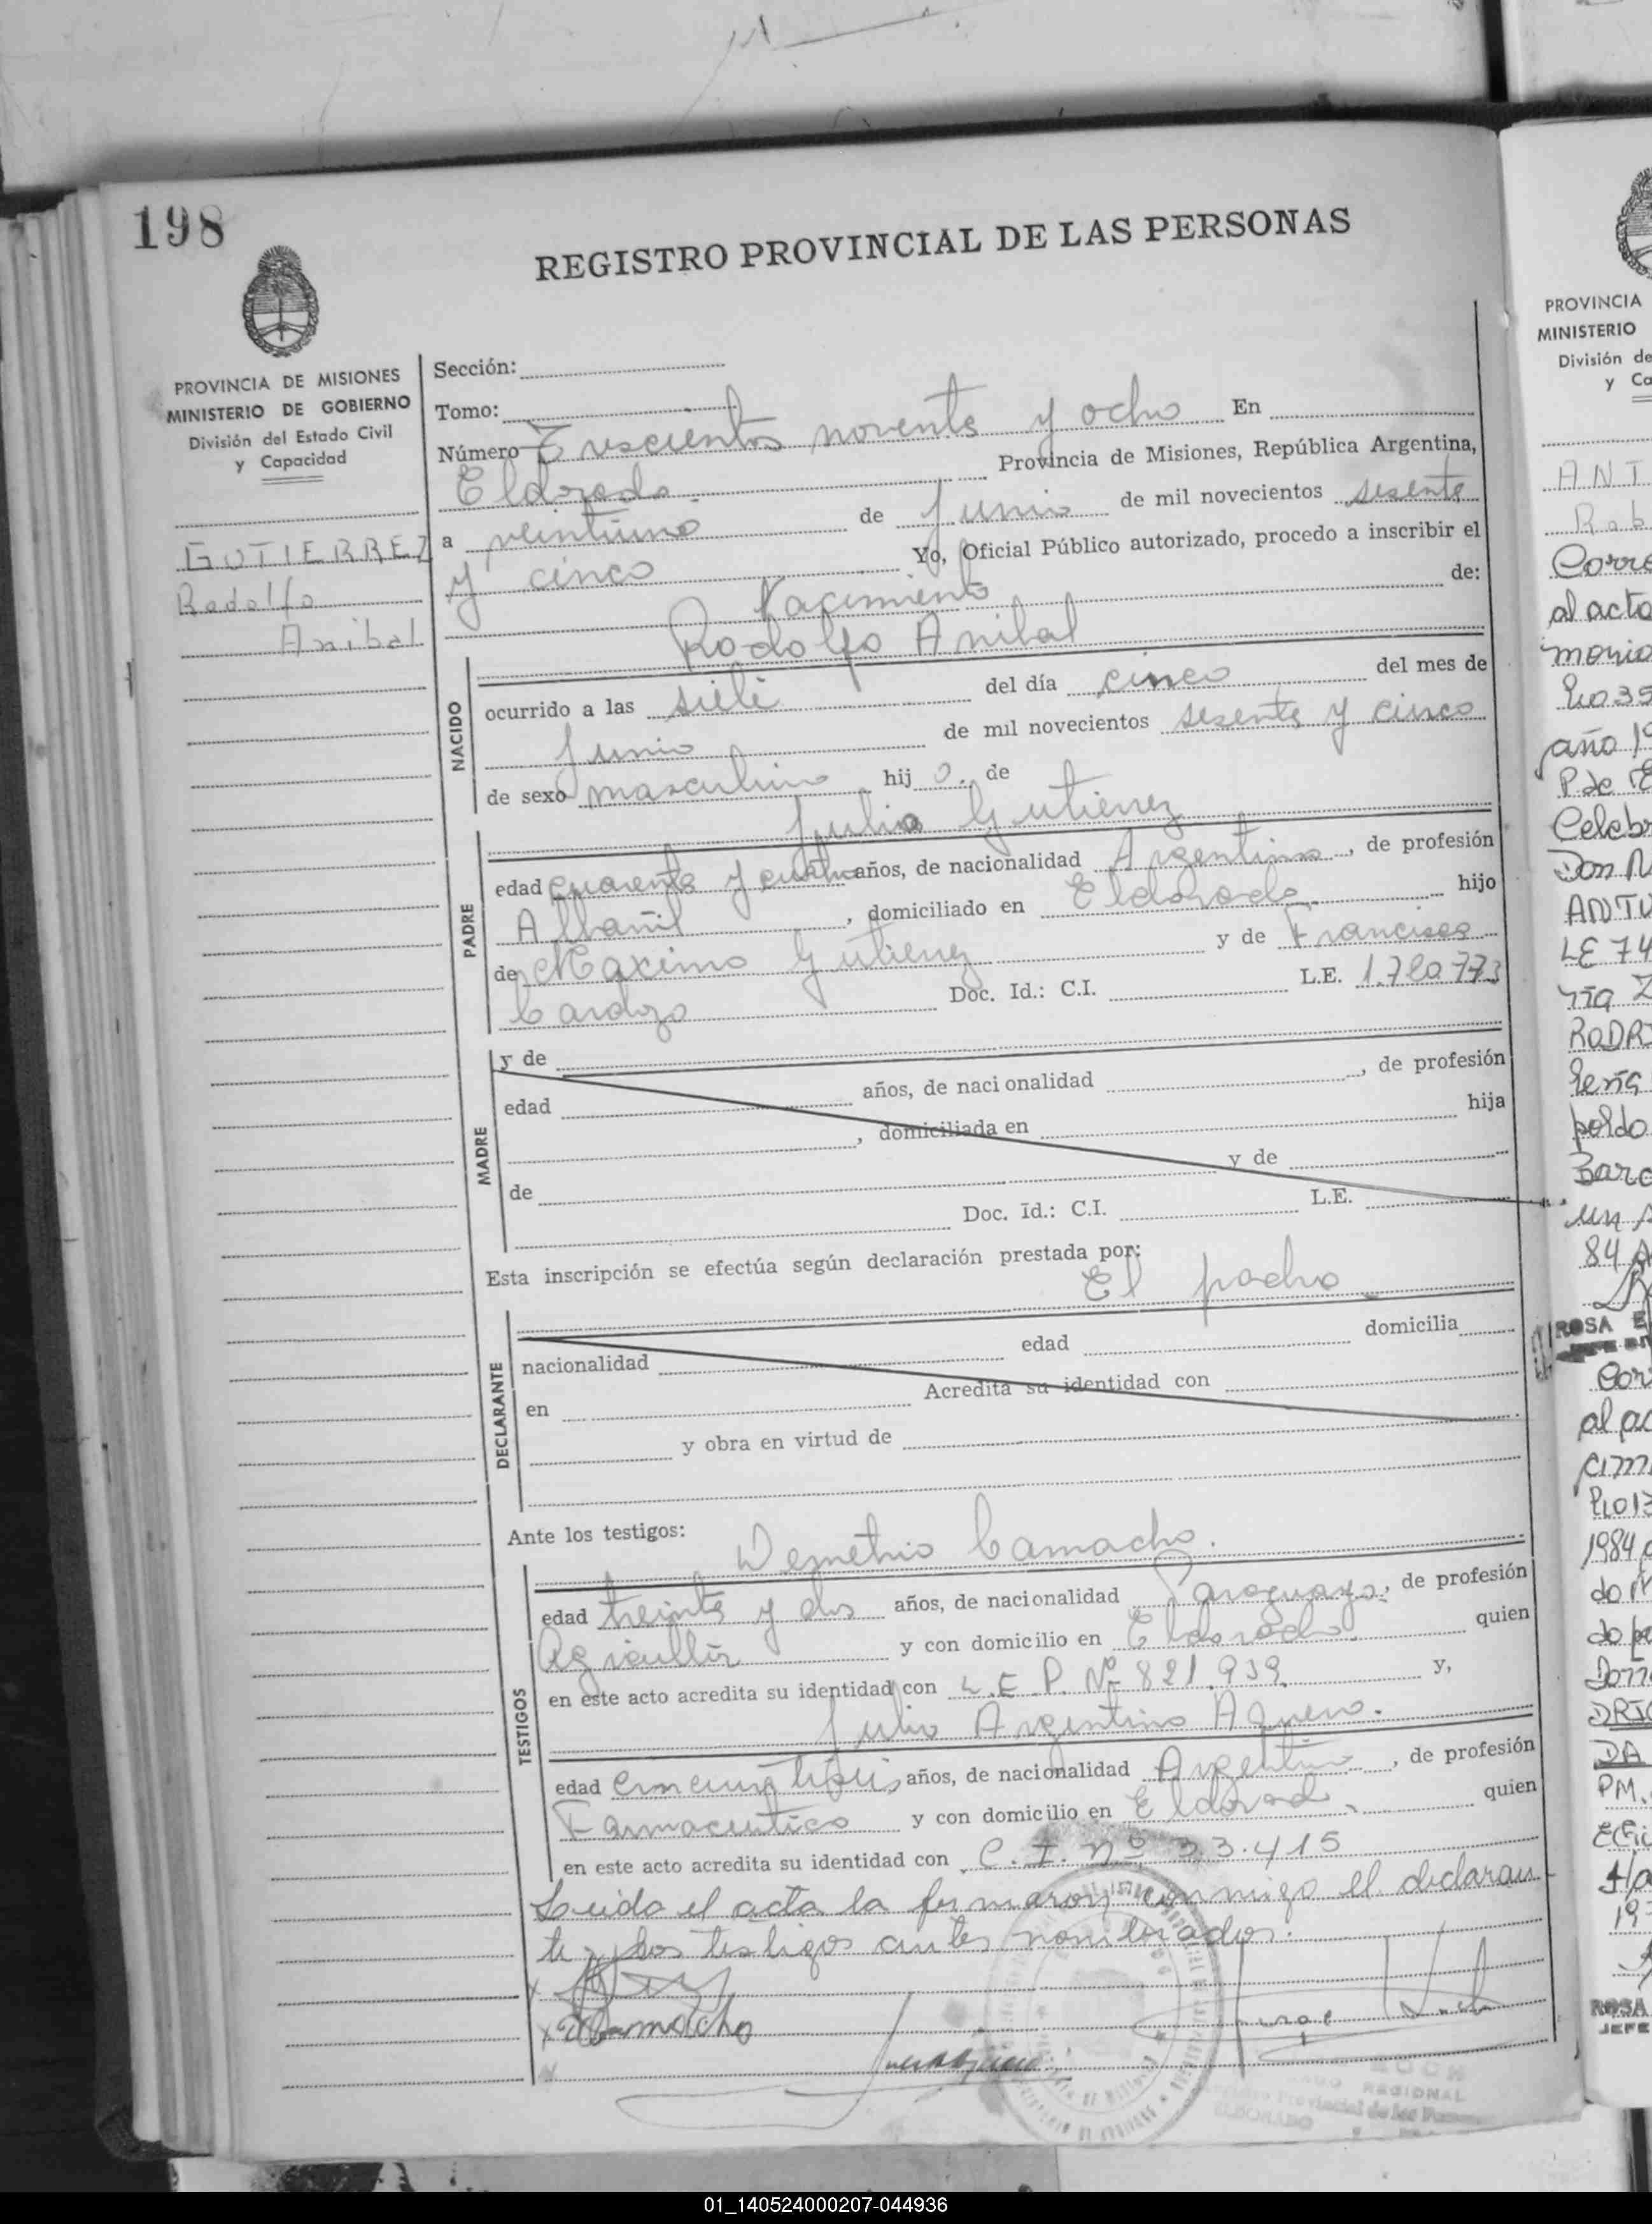 198
REGISTRO PROVINCIAL DE LAS PERSONAS
PROVINCIA DE MISIONES
MINISTERIO DE GOBIERNO
División del Estado Civil
y Capacidad
GUTIERREZ
Rodolfo
Anibal
Sección:
Tomo:
Número Trescientos noventa y ocho En
Eldorado. Provincia de Misiones, República Argentina,
a veintiuno de Junio de mil novecientos sesenta
y cinco Yo, Oficial Público autorizado, procedo a inscribir el
Nacimiento de:
Rodolfo Anibal
NACIDO
ocurrido a las siete del día cinco del mes de
Junio de mil novecientos sesenta y cinco
de sexo masculino hijo. de
Julio Gutierrez
PADRE
edad cuarenta y cuatro años, de nacionalidad Argentina, de profesión
Albañil, domiciliado en Eldorado. hijo
de Maximo Gutierrez y de Francisca
Cardozo Doc. Id.: C.I. L.E. 1.720.773
MADRE
y de
edad años, de nacionalidad , de profesión
, domiciliada en hija
de y de
Doc. Id.: C.I. L.E.
Esta inscripción se efectúa según declaración prestada por:
El padre
DECLARANTE
nacionalidad edad domicilia
en Acredita su identidad con
y obra en virtud de
Ante los testigos:
Demetrio Camacho.
TESTIGOS
edad treinta y dos años, de nacionalidad Paraguaya, de profesión
Agricultor y con domicilio en Eldorado. quien
en este acto acredita su identidad con L.E.P. Nº 821.939. y,
Julio Argentino Aguero.
edad cincuenta y seis años, de nacionalidad Argentina, de profesión
Farmaceutico y con domicilio en Eldorado. quien
en este acto acredita su identidad con C.I. nº 33.415
Leida el acta la firmaron conmigo el declaran
te y los testigos antes nombrados.
Camacho
REGIONAL
Registro Provincial de las Personas
ELDORADO
PROVINCIA
MINISTERIO
División de
y Ca
ANT
Rob
Corre
al acto
monio
año 19
P. de
Celebr
Don
ANTU
LE 74
RODRI
poldo
Barc
un
84
ROSA E
JEFE
Cor
al ac
cimi
1984
do
DRIG
DA
PM.
ROSA
JEFE
01_140524000207-044936